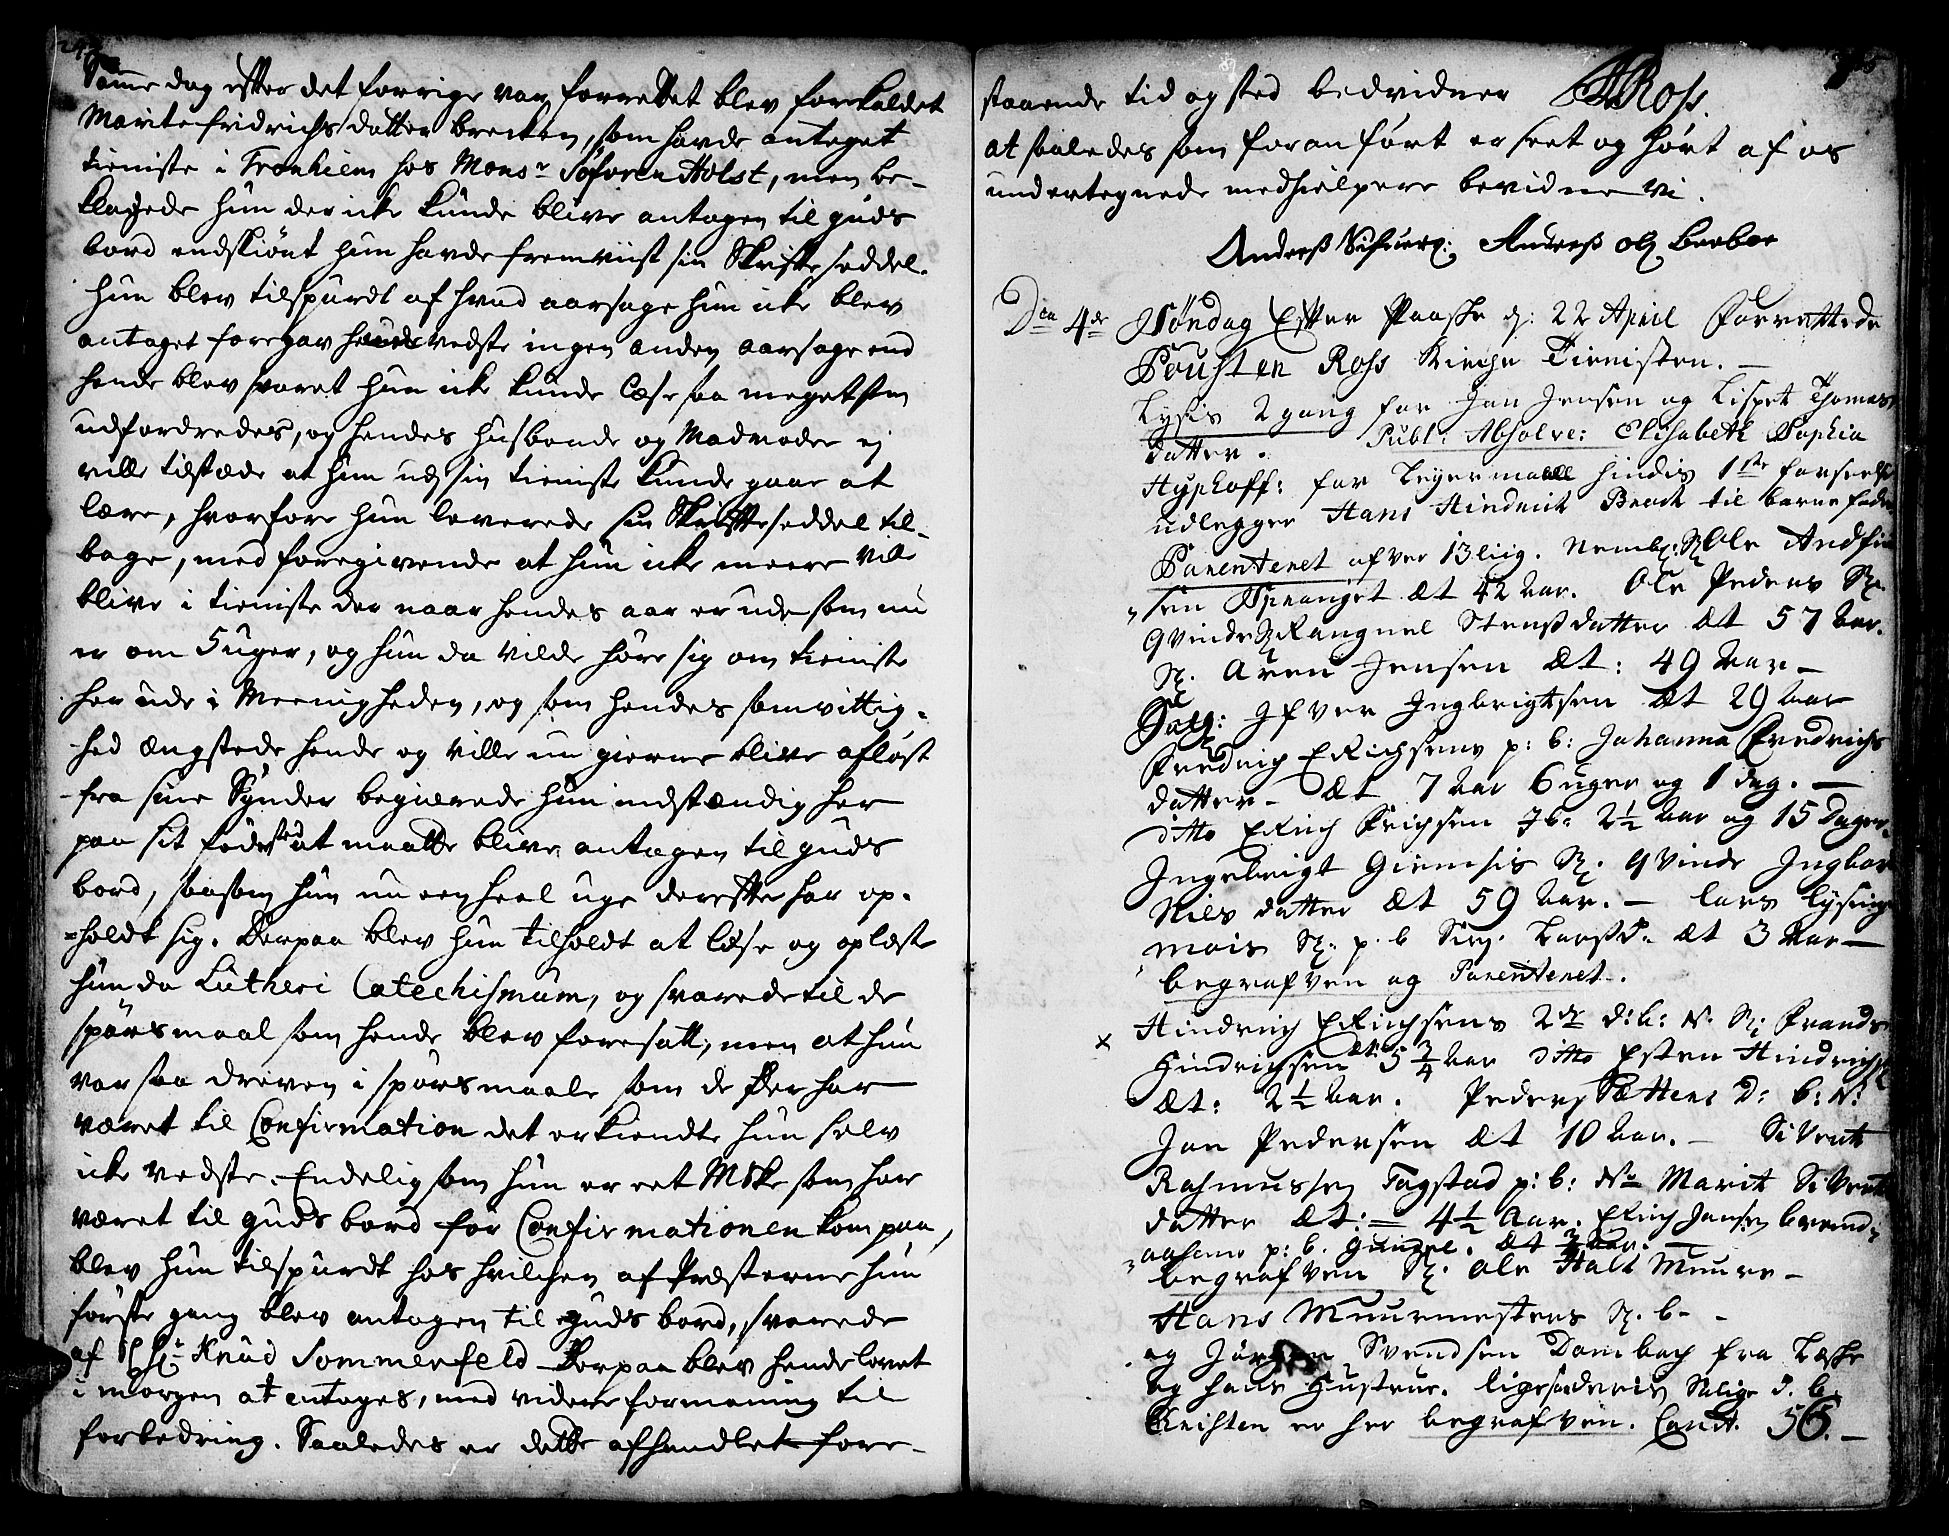 Samme dag efter det forrige var forrettet blev forekaldet
Marite fridrichs datter brecken, som hafde antaget
tieniste i Tronhiem hos Mons:r Søforen Holst, men be-
klagede hun der icke kunde blive antagen til guds
bord endskiønt hun hafde fremviist sin Skriftesæddel.
hun blev tilspurdt af hvad aarsage hun icke blev
antaget foregav hun vedste ingen anden aarsage end
hende blev svaret hun icke kunde læse saa meget som
udfordredes, og hendes husbonde og Madmoder ej
ville tilstæde at hun ud sin tieniste kunde gaae at
lære, hvorfore hun leverede sin Skriftesæddel til-
bage, med foregivende at hun icke meere ville
blive i tieniste der naar hendes aar er ude som nu
er om 5 uger, og hun da vilde høre sig om tieniste
her ude i Meenigheden, og som hendes samvittig-
hed ængstede hende og ville nu gierne blive afløst
fra sine Synder begiærede hun indstændig her
paa sit fødested at maatte blive antagen til guds
bord, saasom hun nu een heel uge derefter har op-
holdt sig. Derpaa blev hun tilholdt at læse og oplæste
hun da Lutheri Catechismum, og svarede til de
spørsmaal som hende blev foresatt, men at hun
var saa dreven i spørsmaale som de der har
været til Confirmation det erkiendte hun selv
icke vedste. Endelig som hun er eet Mske som har
været til guds bord før Confirmationen kom paa,
blev hun tilspurdt hos hvilchen af Præsterne hun
første gang blev antagen til guds bord, svarede
af S. Hr. Knud Sommerfeld Derpaa blev hende lovet
i morgen at antages, med videre formaning til
forbedring. Saaledes er dette afhandlet fore-
staaende tid og sted bevidner ARoss.
at saaledes som foranført er seet og hørt af os
undertegnede medhielpere bevidne vi.
Anders Sifuerz: Anders olz
Den 4de Søndag Efter Paaske d: 22 April Forrettede
Pousten Ross Kirche Tienisten. —
Lysis 2 gang for Jon Jensen og Lispet Thomas
datter. Publ: Absolve: Elisabeth Sophia
Hyphoff: for Leyermaall hindis 1ste forseelse
udlegger Hans Hindrick Brock til barnefader
Parenteret ofver 13 liig. Nembl: Sl Ole Andfin
sen Spranget æt 42 aar. Ole Peders Sl.
qvinde Rangnel Stensdatter æt 57 aar.
Sl. Aren Jensen æt: 49 aar —
Salg: Ifver Ingbrigtsen æt 29 aar
Fredrich Erichsens p: b: Johanna Fredrichs
datter — æt 7 aar 6 uger og 1 dag. —
ditto Erich Erichsen 2½ aar og 15 Dager
Ingebrigt Giemsis Sl. qvinde Ingbor
Niels datter æt 59 aar. — lars Lysing
mois Sl: p. b Siri Larsd. æt 3 aar —
begrafven og Parenteret.
x Hindrich Erichsens 2de d: b: N: Sl: Frands
Hindrichsen æt: 5¾ aar ditto Esten Hindrichs
æt: 2½ aar. Peder Sættens D: b: N:
Jon Pedersen æt 10 aar. — Sivert
Rasmussen Fagstad p: b: N: Marit Sivert
datter æt: = 4½ aar. Erich Jansen brend-
aasens p: b. Gunnel. æt ¾ aar. —
begrafven Sl. ole Halt Muure —
Hans Muurmesters Sl. b. —
og Jørgen Svendsen Dombach fra Leske
og hans Hustrue. ligesaadenis Salige d. b.
Christen er her begrafven. Comt. 56. —